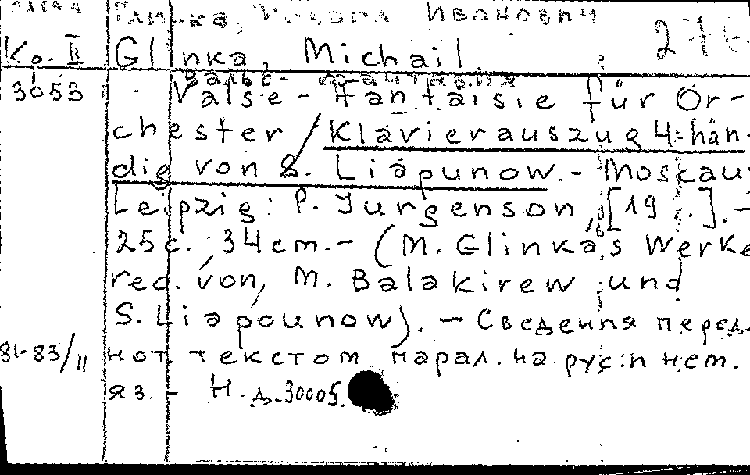 Глинка, Михаил Иванович 276
Ко. II Glinka, Michail
Вальс-фантазия
3053 Valse-Fantaisie für Or-
chester / Klavierauszug 4-hän-
dig von S. Liapunow. - Moscau
Leipzig: P. Jurgenson, [19 ..]. -
25c., 34cm. - (M. Glinka's Werke
red. von, M. Balakirew und
S. Liapounow). - Сведения перед
81-83/11 нот. текстом парал. на рус. и нем.
яз. - Н.д. 30005.